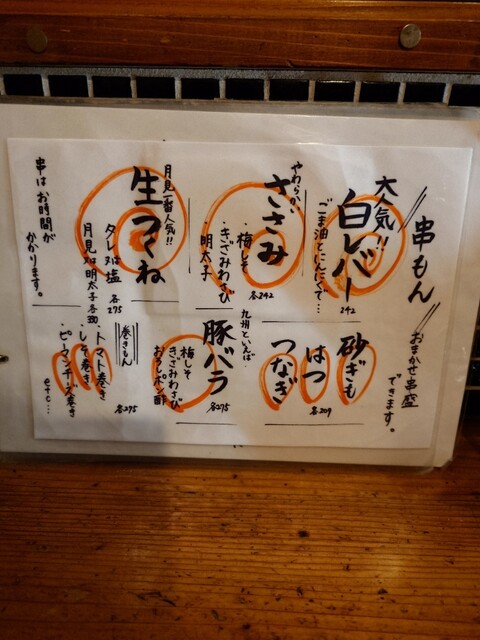 串もん
おまかせ串盛
できます。
大人気!!
白レバー
ごま油とにんにくで…
242
やわらかい
ささみ
・梅しそ
・きざみわさび
・明太子
各242
月見一番人気!!
生つくね
タレ or 塩
各275
串はお時間が
かかります。
砂ぎも
はつ
つなぎ
各209
九州といえば…
豚バラ
梅しそ
きざみわさび
おろしポン酢
各275
巻きもん
・トマト巻き
・しそ巻き
・ピーマンチーズ巻き
etc…
各275